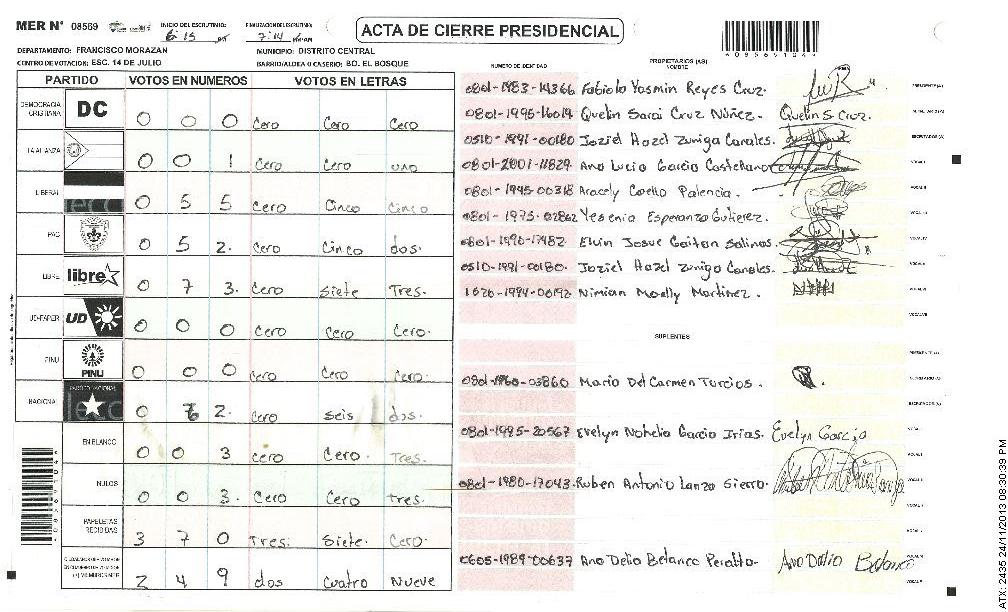 MER N° 08569
INICIO DEL ESCRUTINIO: 6:15 pm
FINALIZACION DEL ESCRUTINIO: 7:14
ACTA DE CIERRE PRESIDENCIAL
DEPARTAMENTO: FRANCISCO MORAZAN
MUNICIPIO: DISTRITO CENTRAL
CENTRO DE VOTACION: ESC. 14 DE JULIO
BARRIO/ALDEA O CASERIO: BO. EL BOSQUE
PARTIDO VOTOS EN NUMEROS VOTOS EN LETRAS
DEMOCRACIA CRISTIANA DC 0 0 0 Cero Cero Cero
LA ALIANZA 0 0 1 Cero Cero uno
LIBERAL 0 5 5 Cero Cinco Cinco
PAC 0 5 2. Cero Cinco dos.
LIBRE libre 0 7 3. Cero Siete Tres.
UD-FAPER UD 0 0 0 Cero Cero Cero.
PINU PINU 0 0 0 Cero Cero Cero.
NACIONAL PARTIDO NACIONAL 0 6 2. Cero Seis dos.
EN BLANCO 0 0 3 Cero Cero. Tres.
NULOS 0 0 3. Cero Cero Tres.
PAPELETAS RECIBIDAS 3 7 0 Tres. Siete. Cero.
2 4 9 dos Cuatro Nueve
NUMERO DE IDENTIDAD
PROPIETARIOS (AS)
NOMBRE
FIRMA
0801-1983-14366 Fabiola Yasmin Reyes Cruz. PRESIDENTE (A)
0801-1995-16019 Quelin Sarai Cruz Núñez. Quelin S. Cruz.
0510-1991-00180 Joziel Hazel Zuniga Canales. SECRETARIO (A)
0801-2001-11829 Ana Lucia Garcia Castellano VOCAL I
0801-1945-00318 Aracely Coello Palencia. VOCAL II
0801-1975-02862 Yesenia Esperanza Gutierez. VOCAL III
0801-1990-17482 Elvin Josue Gaitan Salinas. VOCAL IV
0510-1991-00180. Joziel Hazel Zuniga Canales. VOCAL V
1626-1994-00192 Nimian Moelly Martinez.
SUPLENTES
0801-1960-03860 Maria Del Carmen Turcios.
0801-1995-20567 Evelyn Nohelia Garcia Irias. Evelyn Garcia
0801-1980-17043. Ruben Antonio Lanza Sierro.
0605-1989-00637 Ana Delia Betanco Peralta. Ana Dalia Betanco
ATX: 2435 24/11/2013 08:30:39 PM